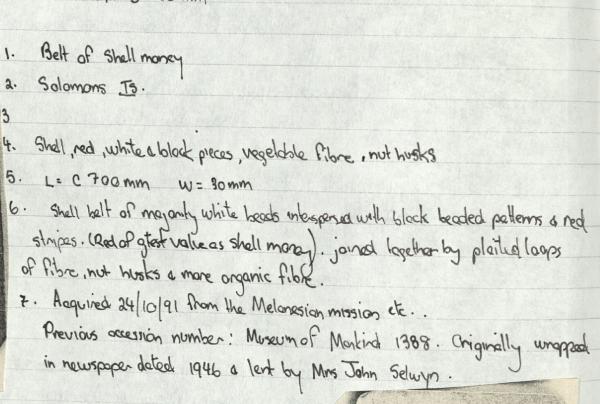 1. Belt of Shell money
2. Solomons Is.
3
4. Shell, red, white & black pieces, vegetable fibre, nut husks
5. L = C 700mm W = 30mm
6. Shell belt of majority white beads interspersed with black beaded patterns & red
stripes. (Red of gtest value as shell money). joined together by plaited loops
of fibre, nut husks & more organic fibre.
7. Acquired 24/10/91 from the Melanesian mission etc..
Previous accession number: Museum of Mankind 1388. Originally wrapped
in newspaper dated 1946 & lent by Mrs John Selwyn.